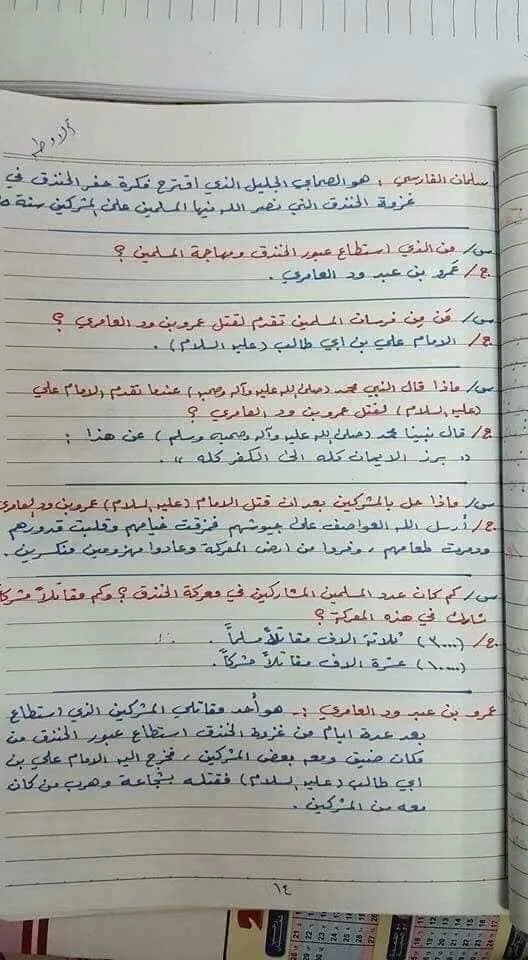 سلمان الفارسي : هو الصحابي الجليل الذي اقترح فكرة حفر الخندق في
غزوة الخندق التي نصر الله فيها المسلمين على المشركين سنة ٥
س/ من الذي استطاع عبور الخندق ومهاجمة المسلمين ؟
ج/ عمرو بن عبد ود العامري .
س/ مَن مِن فرسان المسلمين تقدم لقتل عمرو بن ود العامري ؟
ج/ الامام علي بن ابي طالب (عليه السلام) .
س/ ماذا قال النبي محمد (صلى الله عليه وآله وصحبه) عندما تقدم الامام علي
(عليه السلام) لقتل عمرو بن ود العامري ؟
ج/ قال نبينا محمد (صلى الله عليه وآله وصحبه وسلم) عن هذا :
" برز الايمان كله الى الكفر كله " .
س/ ماذا حل بالمشركين بعد ان قتل الامام (عليه السلام) عمرو بن ود العامري
ج/ أرسل الله العواصف على جيوشهم فمزقت خيامهم وقلبت قدورهم
ودمرت طعامهم ، وفروا من ارض المعركة وعادوا مهزومين منكسرين .
س/ كم كان عدد المسلمين المشاركين في معركة الخندق ؟ وكم مقاتلاً مشركاً
شارك في هذه المعركة ؟
ج/ (٣٠٠٠) ثلاثة الاف مقاتلاً مسلماً .
(١٠٠٠٠) عشرة الاف مقاتلاً مشركاً .
عمرو بن عبد ود العامري :- هو أحد مقاتلي المشركين الذي استطاع
بعد عدة ايام من غزوة الخندق استطاع عبور الخندق من
مكان ضيق ومعه بعض المشركين ، فخرج اليه الامام علي بن
ابي طالب (عليه السلام) فقتله بشجاعة وهرب من كان
معه من المشركين .
١٤